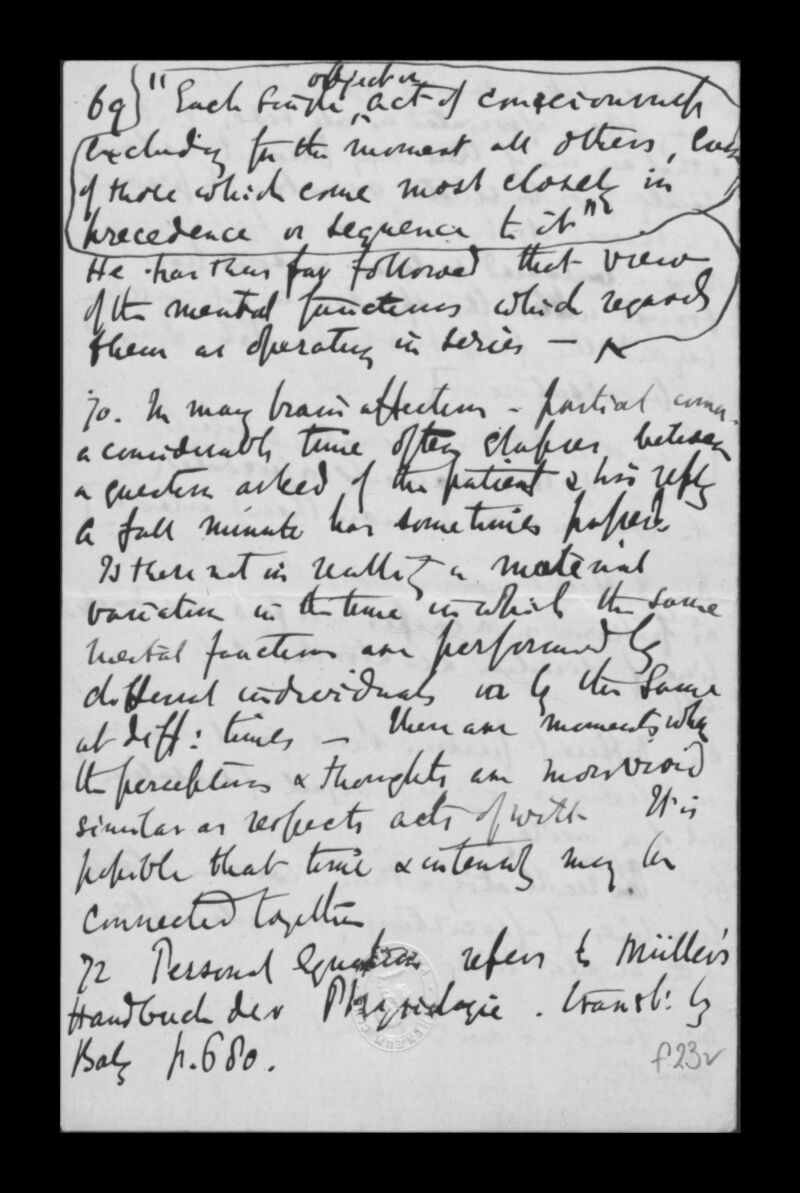 69} "Each single objective act of consciousness
excluding for the moment all others, even
of those which come most closely in
precedence or sequence to it"
He has thus far followed that view
of the mental functions which regards
them as operating in series —
70. In many brain affections - partial coma -
a considerable time often elapses between
a question asked of the patient & his reply
A full minute has sometimes passed.
Is there not in reality a material
variation in the time in which the same
mental functions are performed by
different individuals or by the same
at diff: times — There are moments when
the perceptions & thoughts are more vivid
similar as respects acts of will. It is
possible that time & intensity may be
connected together
72 Personal Equation refers to Müller's
Handbuch der Physiologie. transl: by
Baly p.680.
f.23v